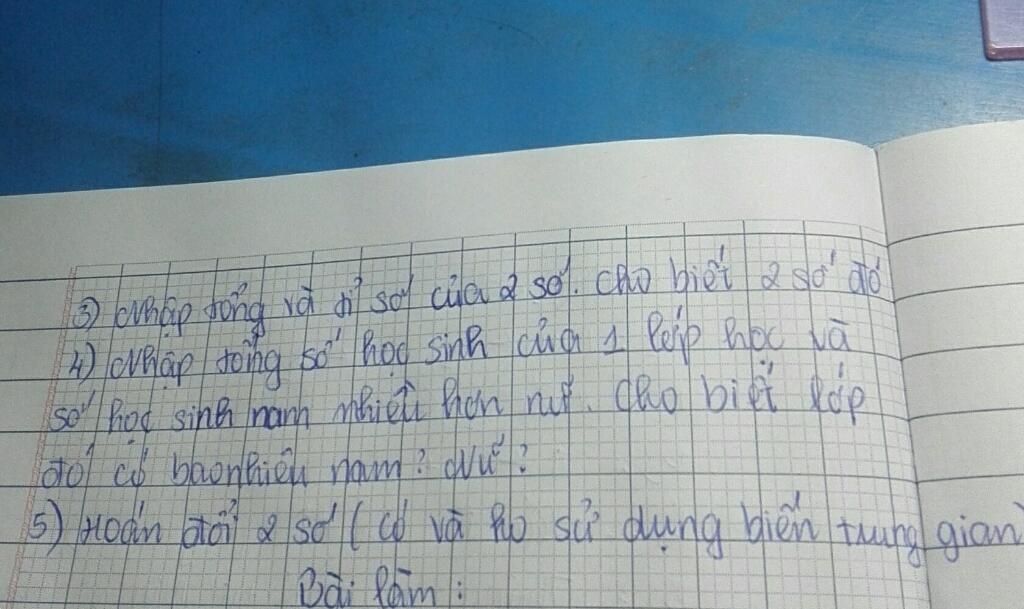 3) Nhập tổng và tỉ số của 2 số. Cho biết 2 số đó
4) Nhập tổng số học sinh của 1 lớp học và
số học sinh nam nhiều hơn nữ. Cho biết lớp
đó có bao nhiêu nam? Nữ?
5) Hoán đổi 2 số (có và ko sử dụng biến trung gian)
Bài làm: